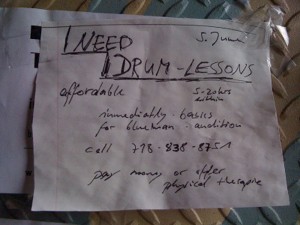 5. June
I NEED
DRUM-LESSONS
affordable
5-20hrs
immediatly basics
for blueman audition
call 718-838-8751
pay money or offer
physical therapie